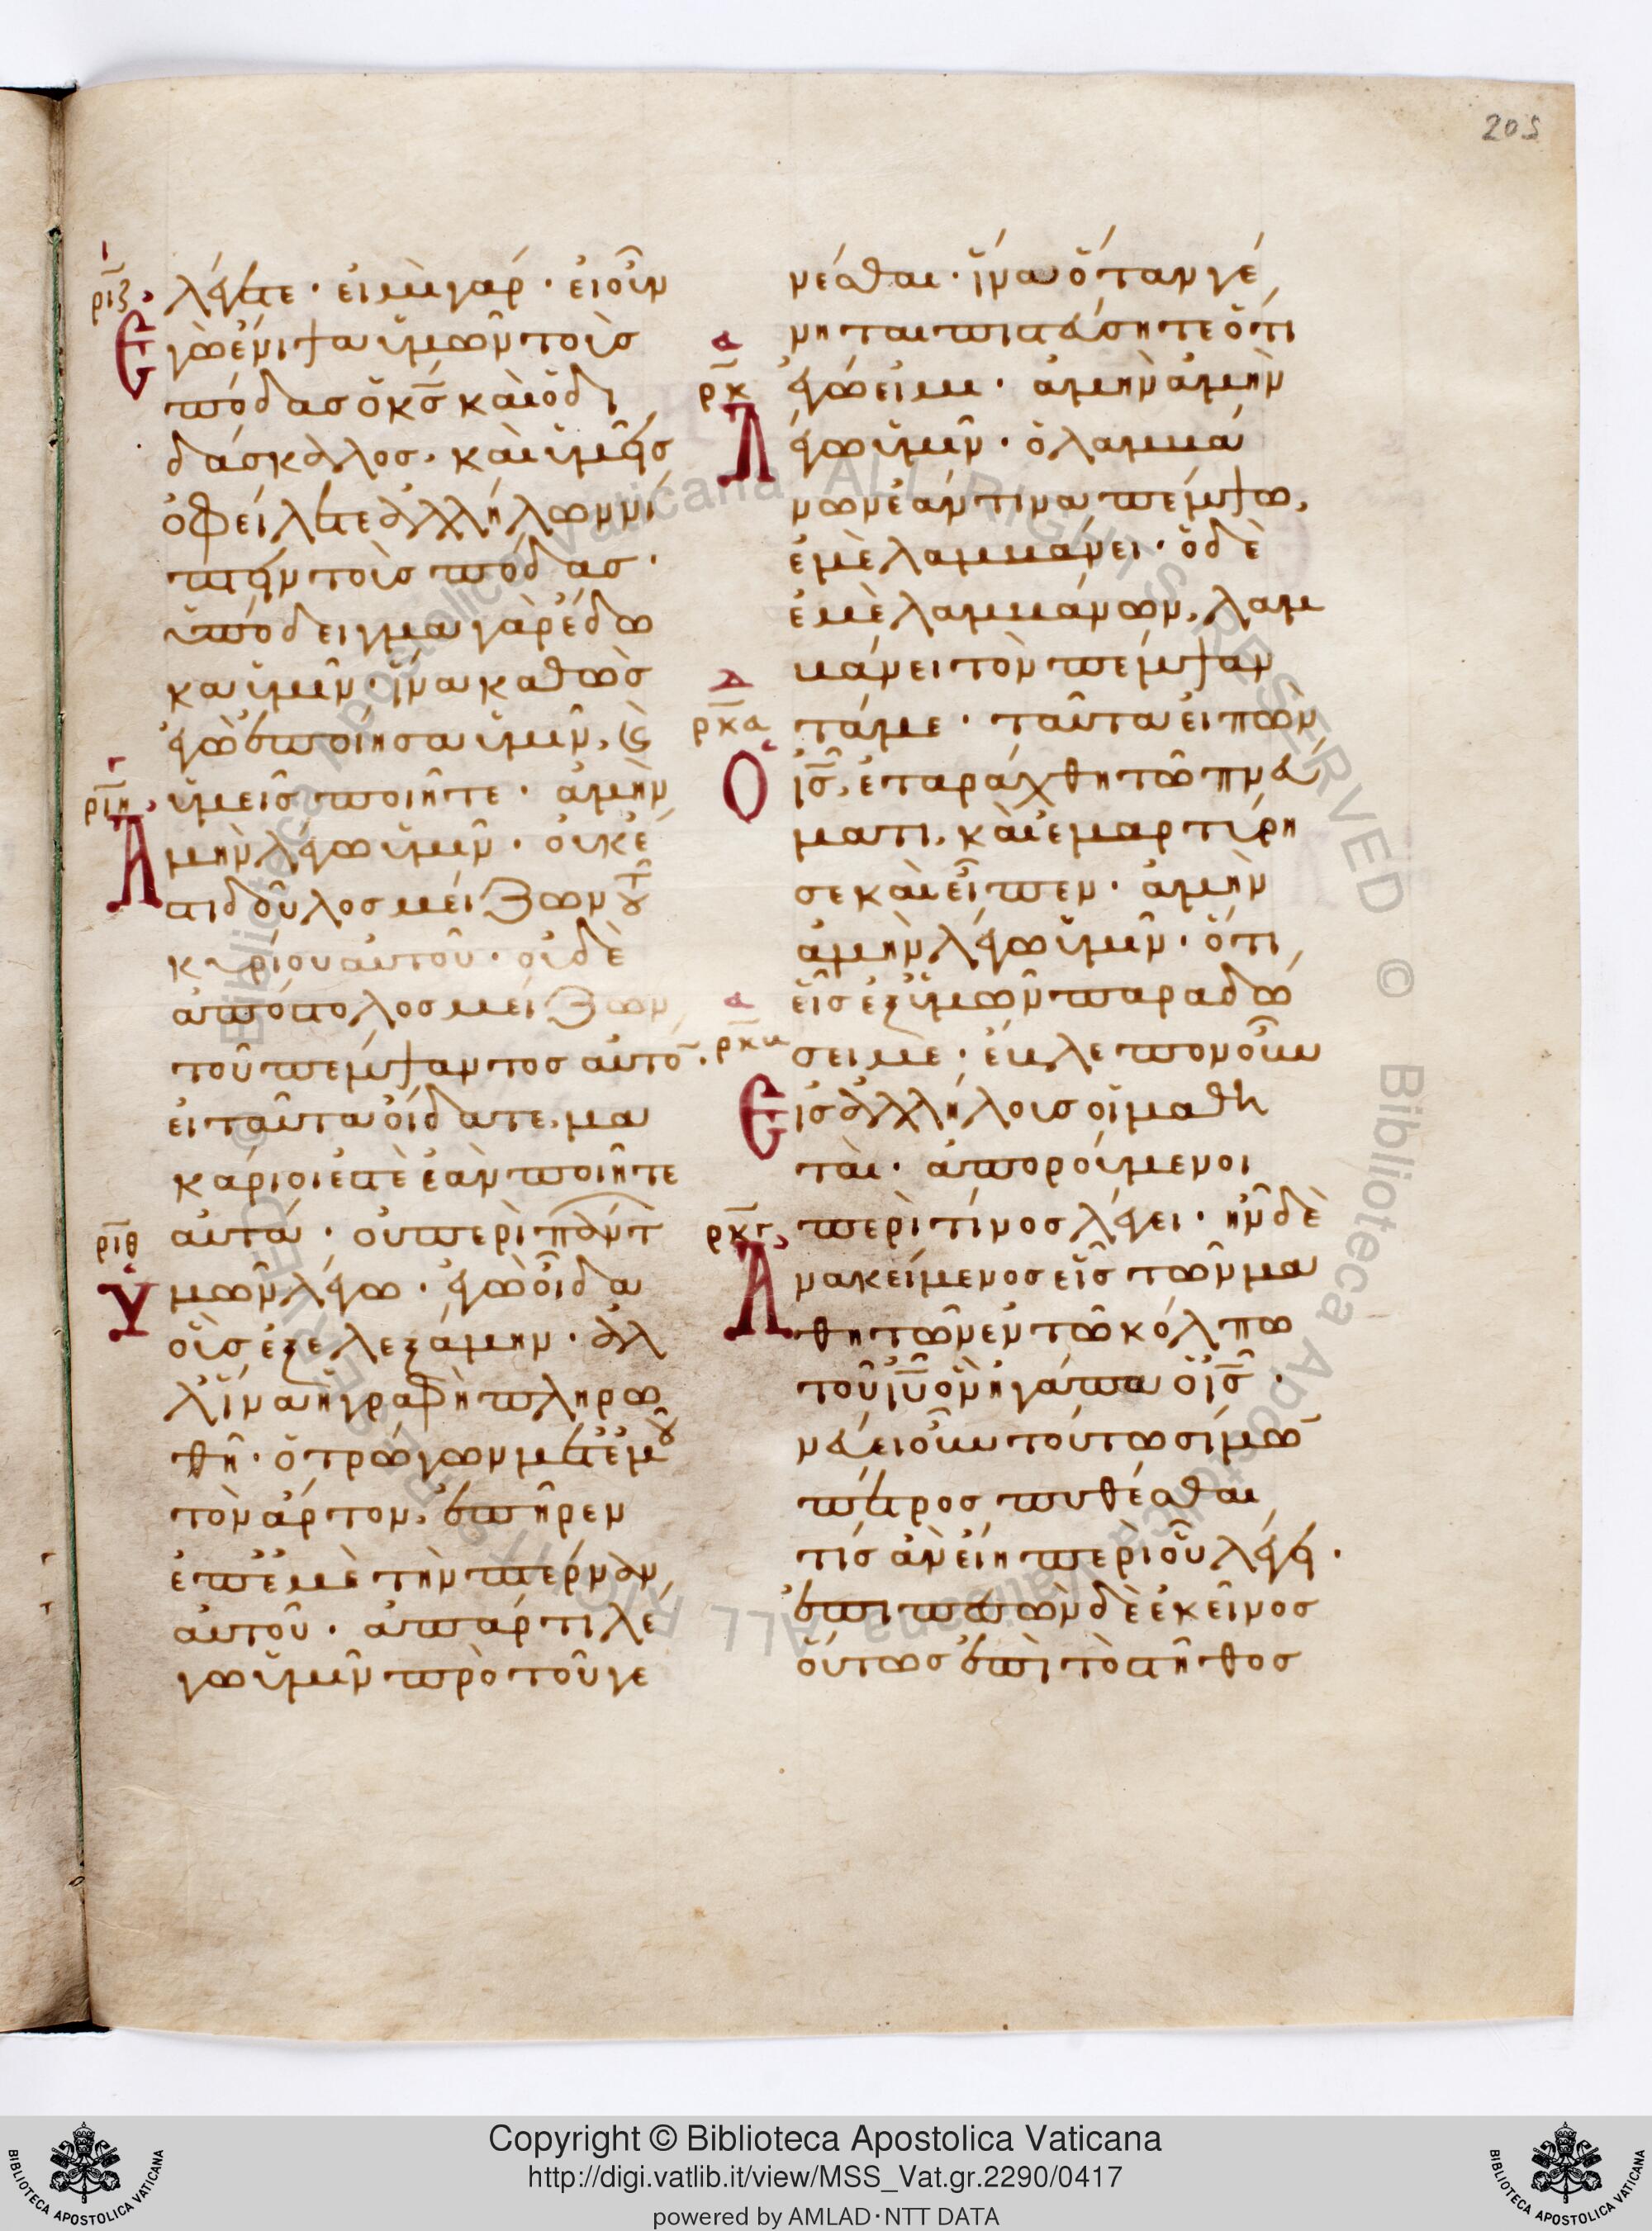 205
ριζ
λέγετε· εἰμὶ γάρ· εἰ οὖν
Ἐγὼ ἔνιψα ὑμῶν τοὺσ
πόδασ ὁ κ̅σ̅ καὶ ὁ δι
δάσκαλοσ, καὶ ὑμεῖσ
ὀφείλετε ἀλλήλων νί
πτειν τοὺσ πόδασ·
ὑπόδειγμα γὰρ ἔδω
κα ὑμῖν· ἵνα καθὼσ
ἐγὼ ἐποίησα ὑμῖν, καὶ
ριη
ὑμεῖσ ποιῆτε· ἀμὴν
Ἀμὴν λέγω ὑμῖν· οὐκ ἔ
στι δοῦλοσ μείζων τοῦ
κυρίου αὐτοῦ· οὐδὲ
ἀπόστολοσ μείζων
τοῦ πέμψαντοσ αὐτό̅·
εἰ ταῦτα οἴδατε, μα
κάριοί ἐστὲ ἐὰν ποιῆτε
ριθ
αὐτά· οὐ περὶ πάντ
Ὑμῶν λέγω· ἐγὼ οἶδα
οὓσ ἐξελεξάμην· ἀλ
λ' ἵνα ἡ γραφὴ πληρω
θῇ· ὁ τρώγων μετ' ἐμοῦ
τὸν ἄρτον, ἐπῆρεν
ἐπ' ἐμὲ τὴν πτέρναν
αὐτοῦ· ἀπάρτι λέ
γω ὑμῖν πρὸ τοῦ γε
νέσθαι· ἵνα ὅταν γέ
νηται πιστεύσητε ὅτι
ρκ
ἐγώ εἰμι· ἀμὴν ἀμὴν
Λέγω ὑμῖν· ὁ λαμβά
νων ἐάν τινα πέμψω,
ἐμὲ λαμβάνει· ὁ δὲ
ἐμὲ λαμβάνων, λαμ
βάνει τὸν πέμψαν
ρκα
τά με· ταῦτα εἰπὼν
Ὁ ι̅σ̅, ἐταράχθη τῶ πνεύ
ματι, καὶ ἐμαρτύρη
σε καὶ εἶπεν· ἀμὴν
ἀμὴν λέγω ὑμῖν· ὅτι
εἷσ ἐξ ὑμῶν παραδώ
ρκβ
σει με· ἔβλεπον οὖν
Εἰσ ἀλλήλουσ οἱ μαθη
ταὶ· ἀπορούμενοι
ρκγ
περὶ τίνοσ λέγει· ἦν δὲ
Ἀνακείμενοσ εἷσ τῶν μα
θητῶν ἐν τῶ κόλπω
τοῦ ι̅υ̅ ὃν ἠγάπα ὁ ι̅σ̅·
νεύει οὖν τούτω σίμω̅
πέτροσ πυθέσθαι
τίσ ἂν εἴη περὶ οὗ λέγει·
ἐπιπεσὼν δὲ ἐκεῖνοσ
οὕτωσ ἐπὶ τὸ στῆθοσ
© Biblioteca Apostolica Vaticana ALL RIGHTS RESERVED © Biblioteca Apostolica Vaticana ALL RIGHTS RESERVED
BIBLIOTECA APOSTOLICA VATICANA
Copyright © Biblioteca Apostolica Vaticana
http://digi.vatlib.it/view/MSS_Vat.gr.2290/0417
powered by AMLAD·NTT DATA
BIBLIOTECA APOSTOLICA VATICANA